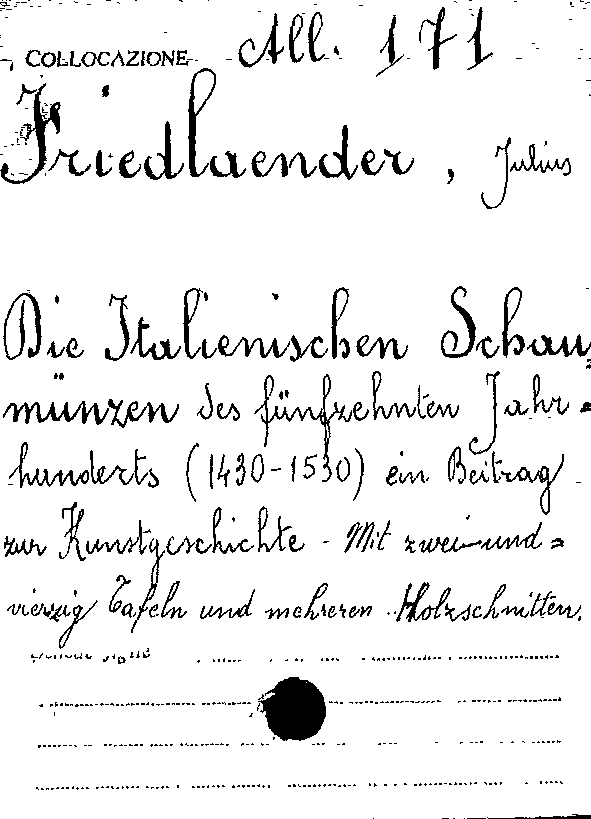 COLLOCAZIONE All. 171
Friedlaender, Julius
Die Italienischen Schau=
münzen des fünfzehnten Jahr=
hunderts (1430-1530) ein Beitrag
zur Kunstgeschichte - Mit zwei-und=
vierzig Tafeln und mehreren Holzschnitten.